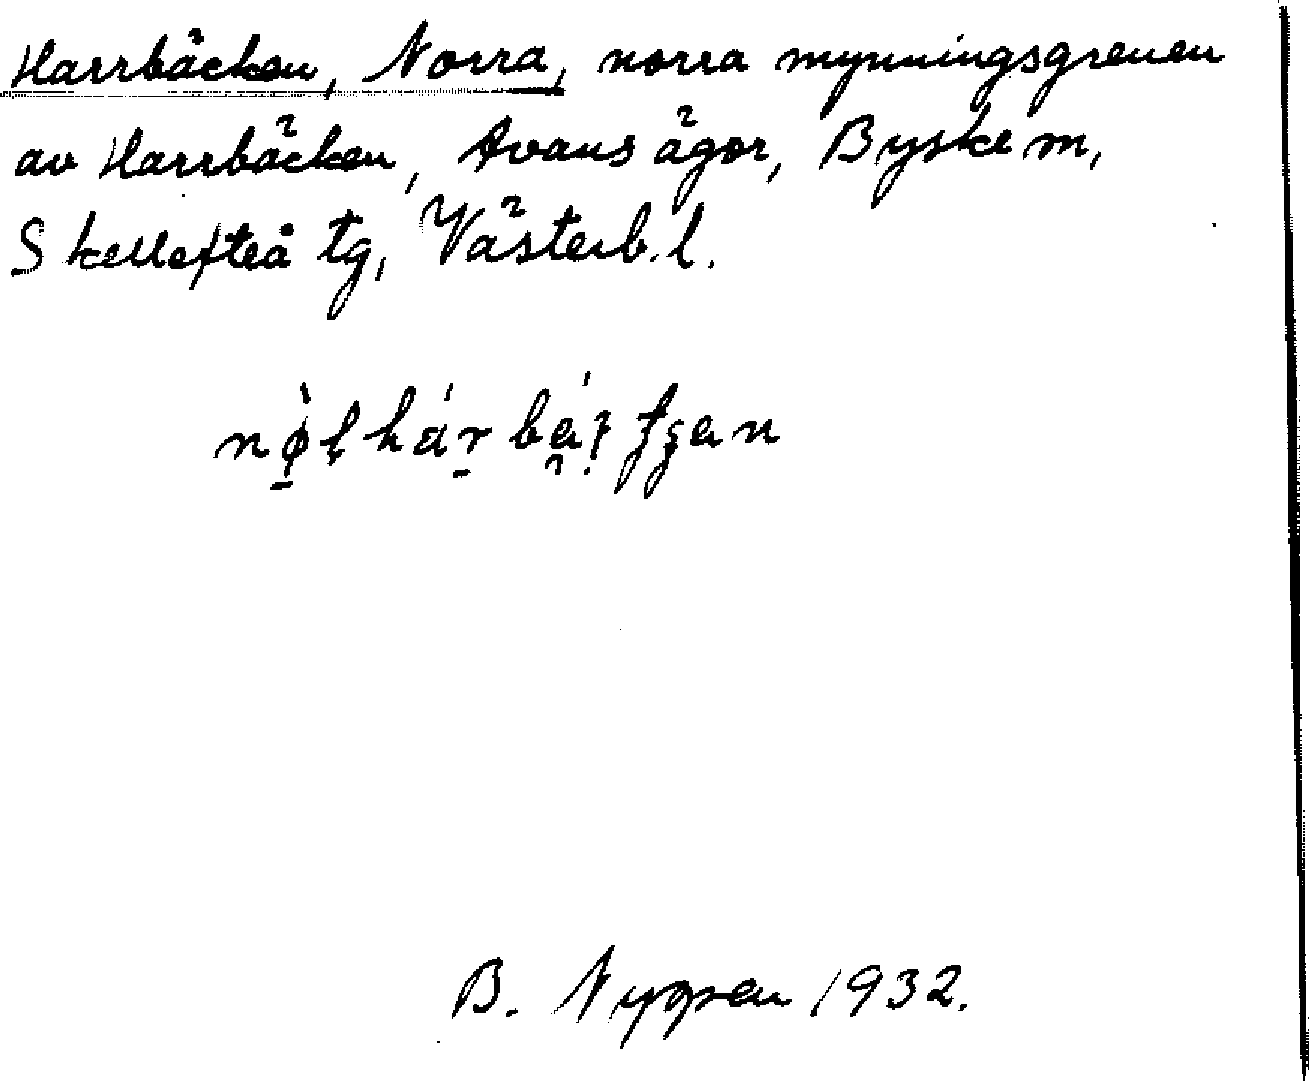 Harrbäcken, Norra, norra mynningsgrenen
av Harrbäcken, Avans ägor, Byske sn,
Skellefteå tg, Västerb. l.
B. Nygren 1932.